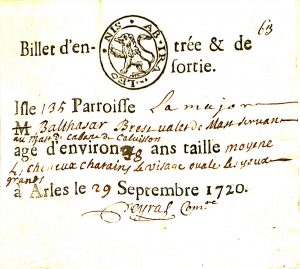 63
NIS AB IRA LEO
Billet d'en- trée & de
sortie.
Isle 135 Parroisse La major
M Balthasar Brest valet de Mast servant
au mas de cabane de Calvisson
agé d'environ 48 ans taille moyene
les cheveux chatains le visage ovale les yeux
grands
à Arles le 29 Septembre 1720.
Peyras Com.re